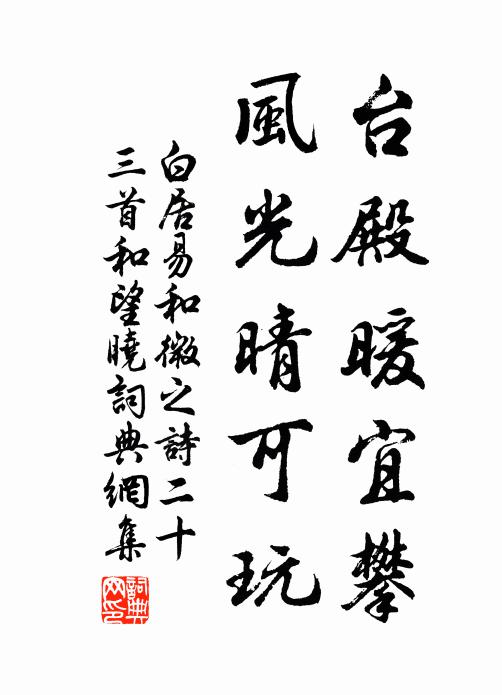 台殿暖宜攀
風光晴可玩
白居易和微之詩二十
三首和望曉詞典網集
詞典网印